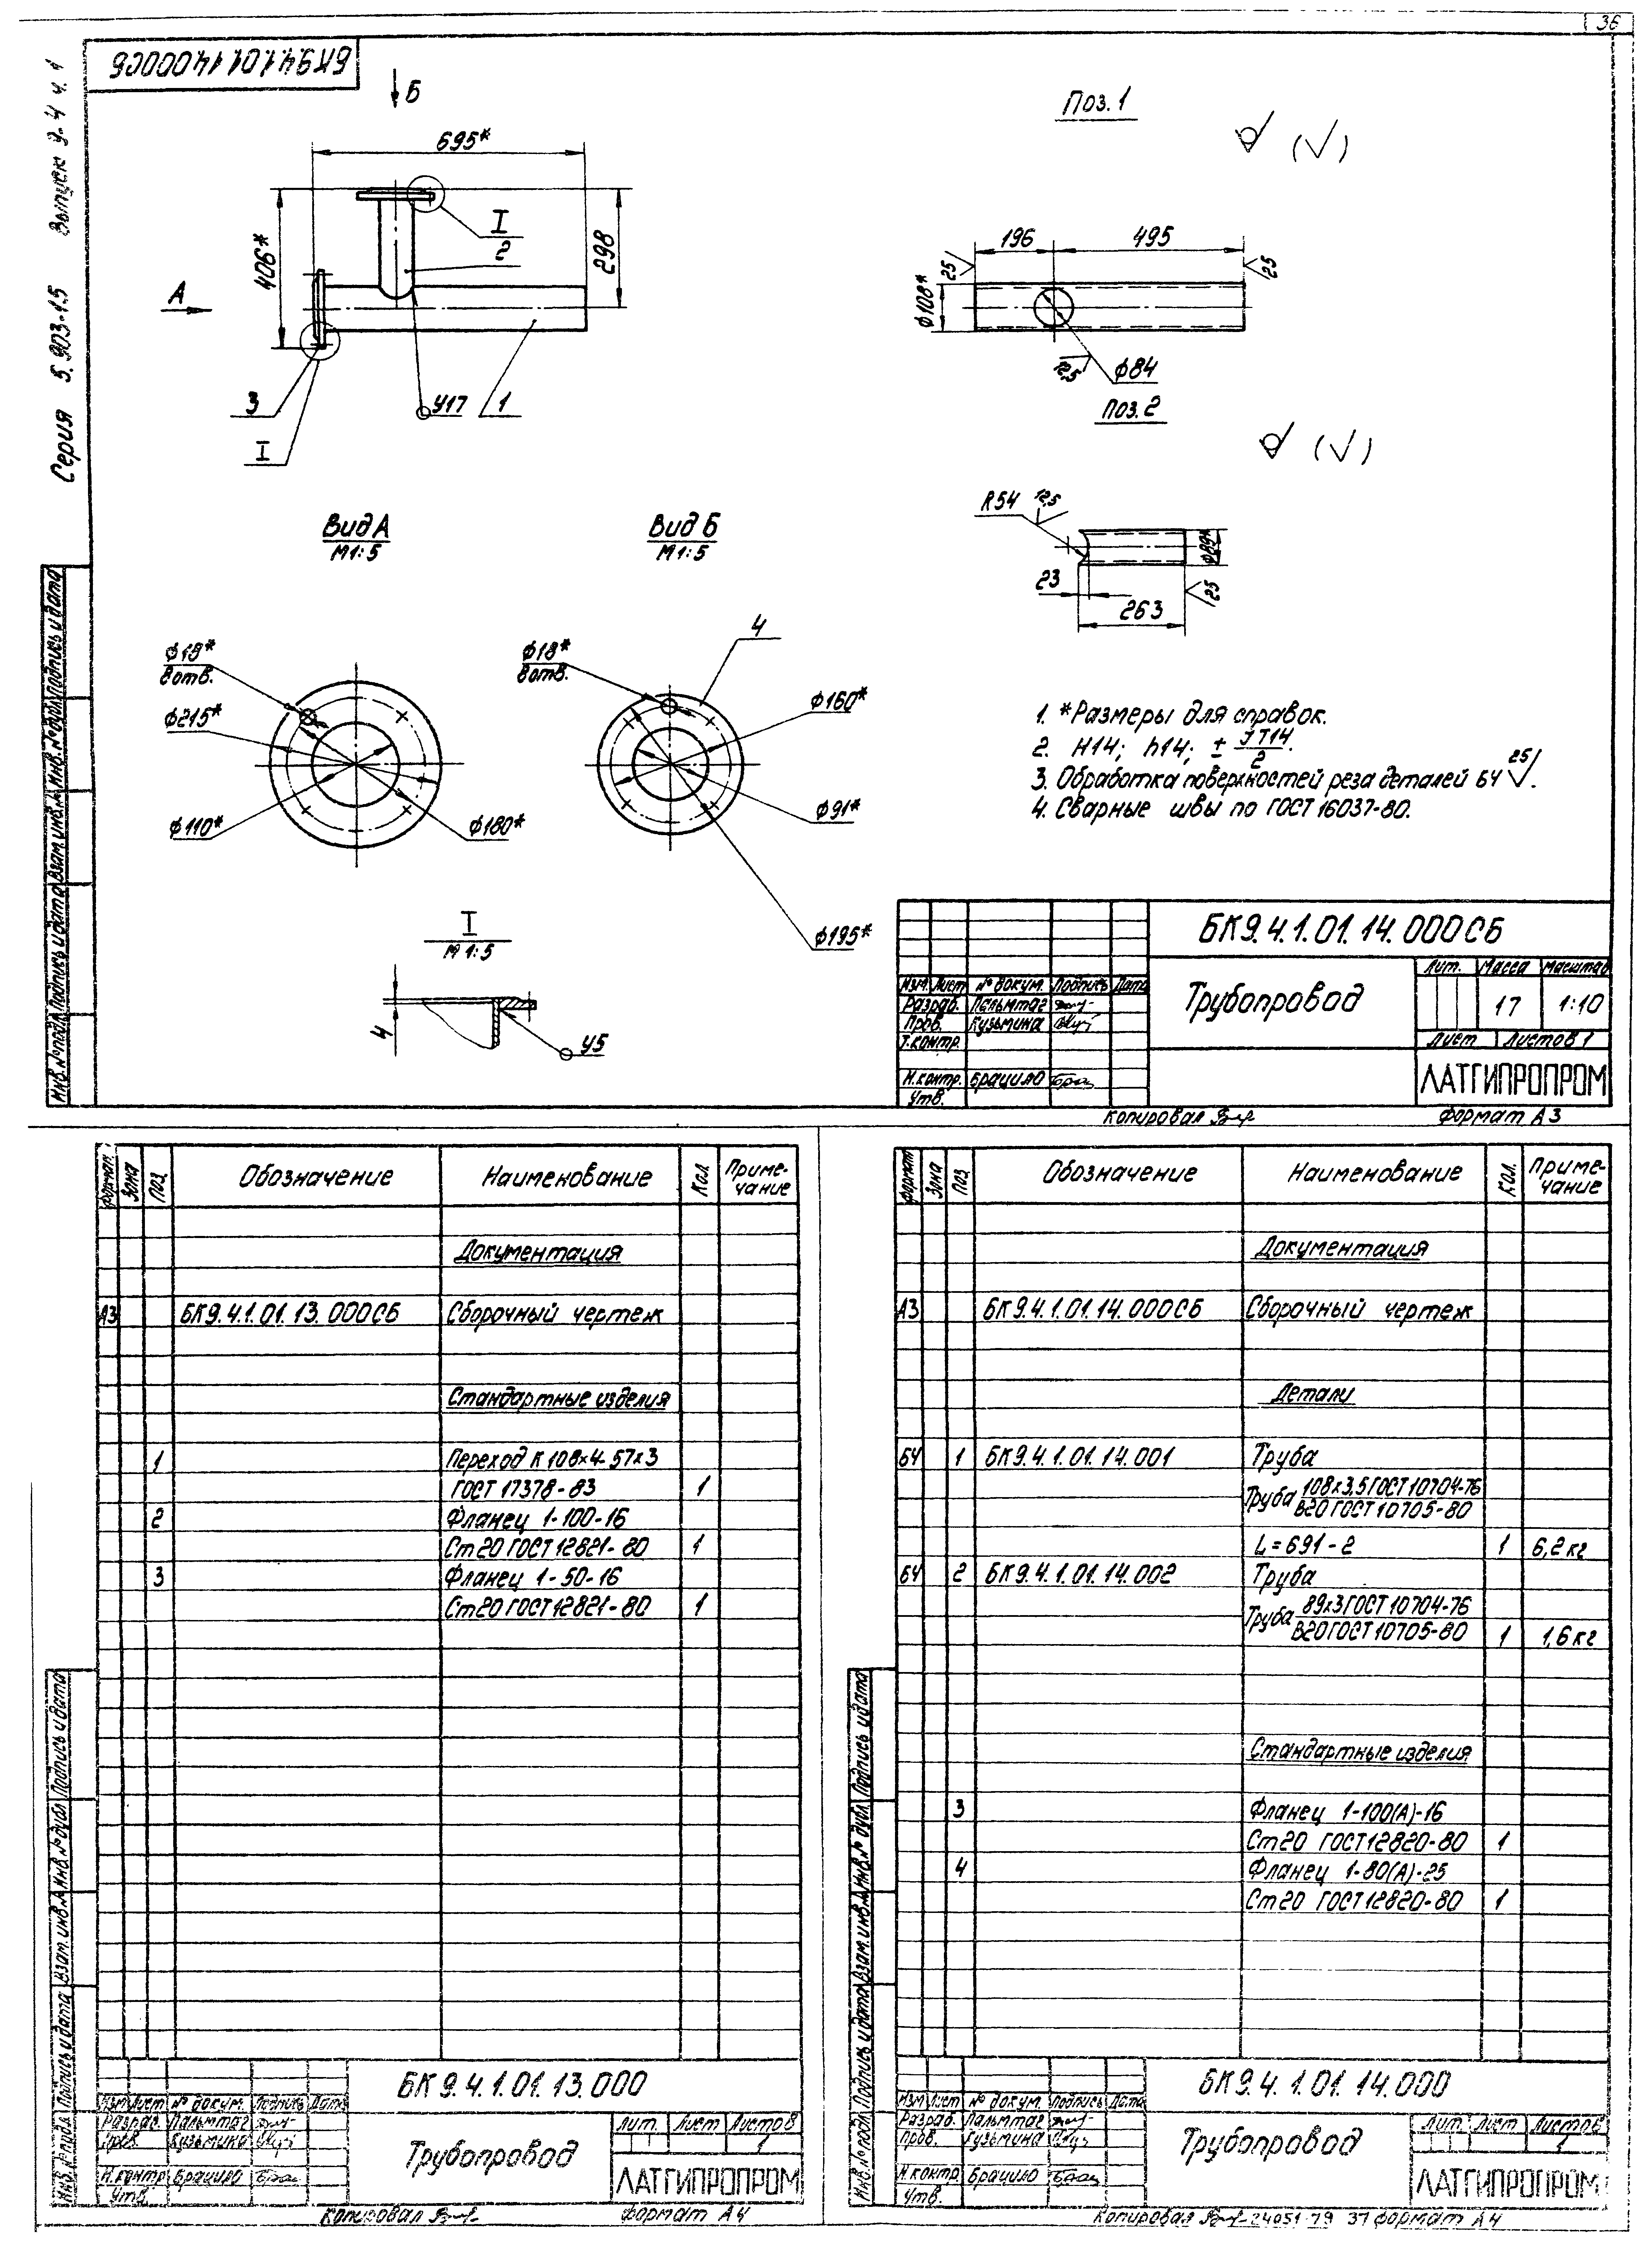 36
БК9.4.1.01.14.000СБ
Серия 5.903-1.5 Выпуск 9.4 ч.1
Б
695*
406*
298
I
2
А
3
I
У17
1
Поз.1
196
495
25
25
ϕ108*
12,5
ϕ84
Поз.2
R54
12,5
ϕ89*
23
263
25
Вид А
М1:5
Вид Б
М1:5
ϕ18*
8отв.
ϕ215*
ϕ110*
ϕ180*
ϕ18*
8отв.
4
ϕ160*
ϕ91*
ϕ195*
I
М 1:5
4
У5
1. *Размеры для справок.
2. Н14; h14; ± JT14/2.
3. Обработка поверхностей реза деталей БЧ 25.
4. Сварные швы по ГОСТ 16037-80.
БК9.4.1.01.14.000СБ
Трубопровод
Лит. Масса Масштаб
17 1:10
Лист Листов 1
ЛАТГИПРОПРОМ
Изм. Лист № докум. Подпись Дата
Разраб. Пальмтаг
Пров. Кузьмина
Т.контр.
Н.контр. Брацило
Утв.
Инв.№подл. Подпись и дата Взам.инв.№ Инв.№дубл. Подпись и дата
Копировал Формат А3
Формат Зона Поз. Обозначение Наименование Кол. Приме-чание
Документация
А3 БК9.4.1.01.13.000СБ Сборочный чертеж
Стандартные изделия
1 Переход К 108×4-57×3
ГОСТ 17378-83 1
2 Фланец 1-100-16
Ст20 ГОСТ 12821-80 1
3 Фланец 1-50-16
Ст20 ГОСТ 12821-80 1
БК9.4.1.01.13.000
Изм Лист № докум. Подпись Дата
Разраб. Пальмтаг
Пров. Кузьмина
Н.контр Брацило
Утв.
Трубопровод
Лит. Лист Листов
1
ЛАТГИПРОПРОМ
Инв.№подл. Подпись и дата Взам.инв.№ Инв.№дубл. Подпись и дата
Копировал Формат А4
Формат Зона Поз Обозначение Наименование Кол. Приме-чание
Документация
А3 БК9.4.1.01.14.000СБ Сборочный чертеж
Детали
БЧ 1 БК9.4.1.01.14.001 Труба
Труба 108×3,5 ГОСТ 10704-76
В20 ГОСТ 10705-80
L=691-2 1 6,2 кг
БЧ 2 БК9.4.1.01.14.002 Труба
Труба 89×3 ГОСТ 10704-76
В20 ГОСТ 10705-80 1 1,6 кг
Стандартные изделия
3 Фланец 1-100(А)-16
Ст20 ГОСТ 12820-80 1
4 Фланец 1-80(А)-25
Ст20 ГОСТ 12820-80 1
БК9.4.1.01.14.000
Изм Лист № докум. Подпись Дата
Разраб. Пальмтаг
Пров. Кузьмина
Н.контр Брацило
Утв.
Трубопровод
Лит. Лист Листов
1
ЛАТГИПРОПРОМ
Инв.№подл. Подпись и дата Взам.инв.№ Инв.№дубл. Подпись и дата
Копировал 24051-79 37 Формат А4